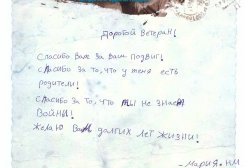 Дорогой Ветеран!
Спасибо Вам за Ваш подвиг!
Спасибо за то, что у меня есть
родители!
Спасибо за то, что мы не знаем
войны!
Желаю Вам долгих лет жизни!
Мария.